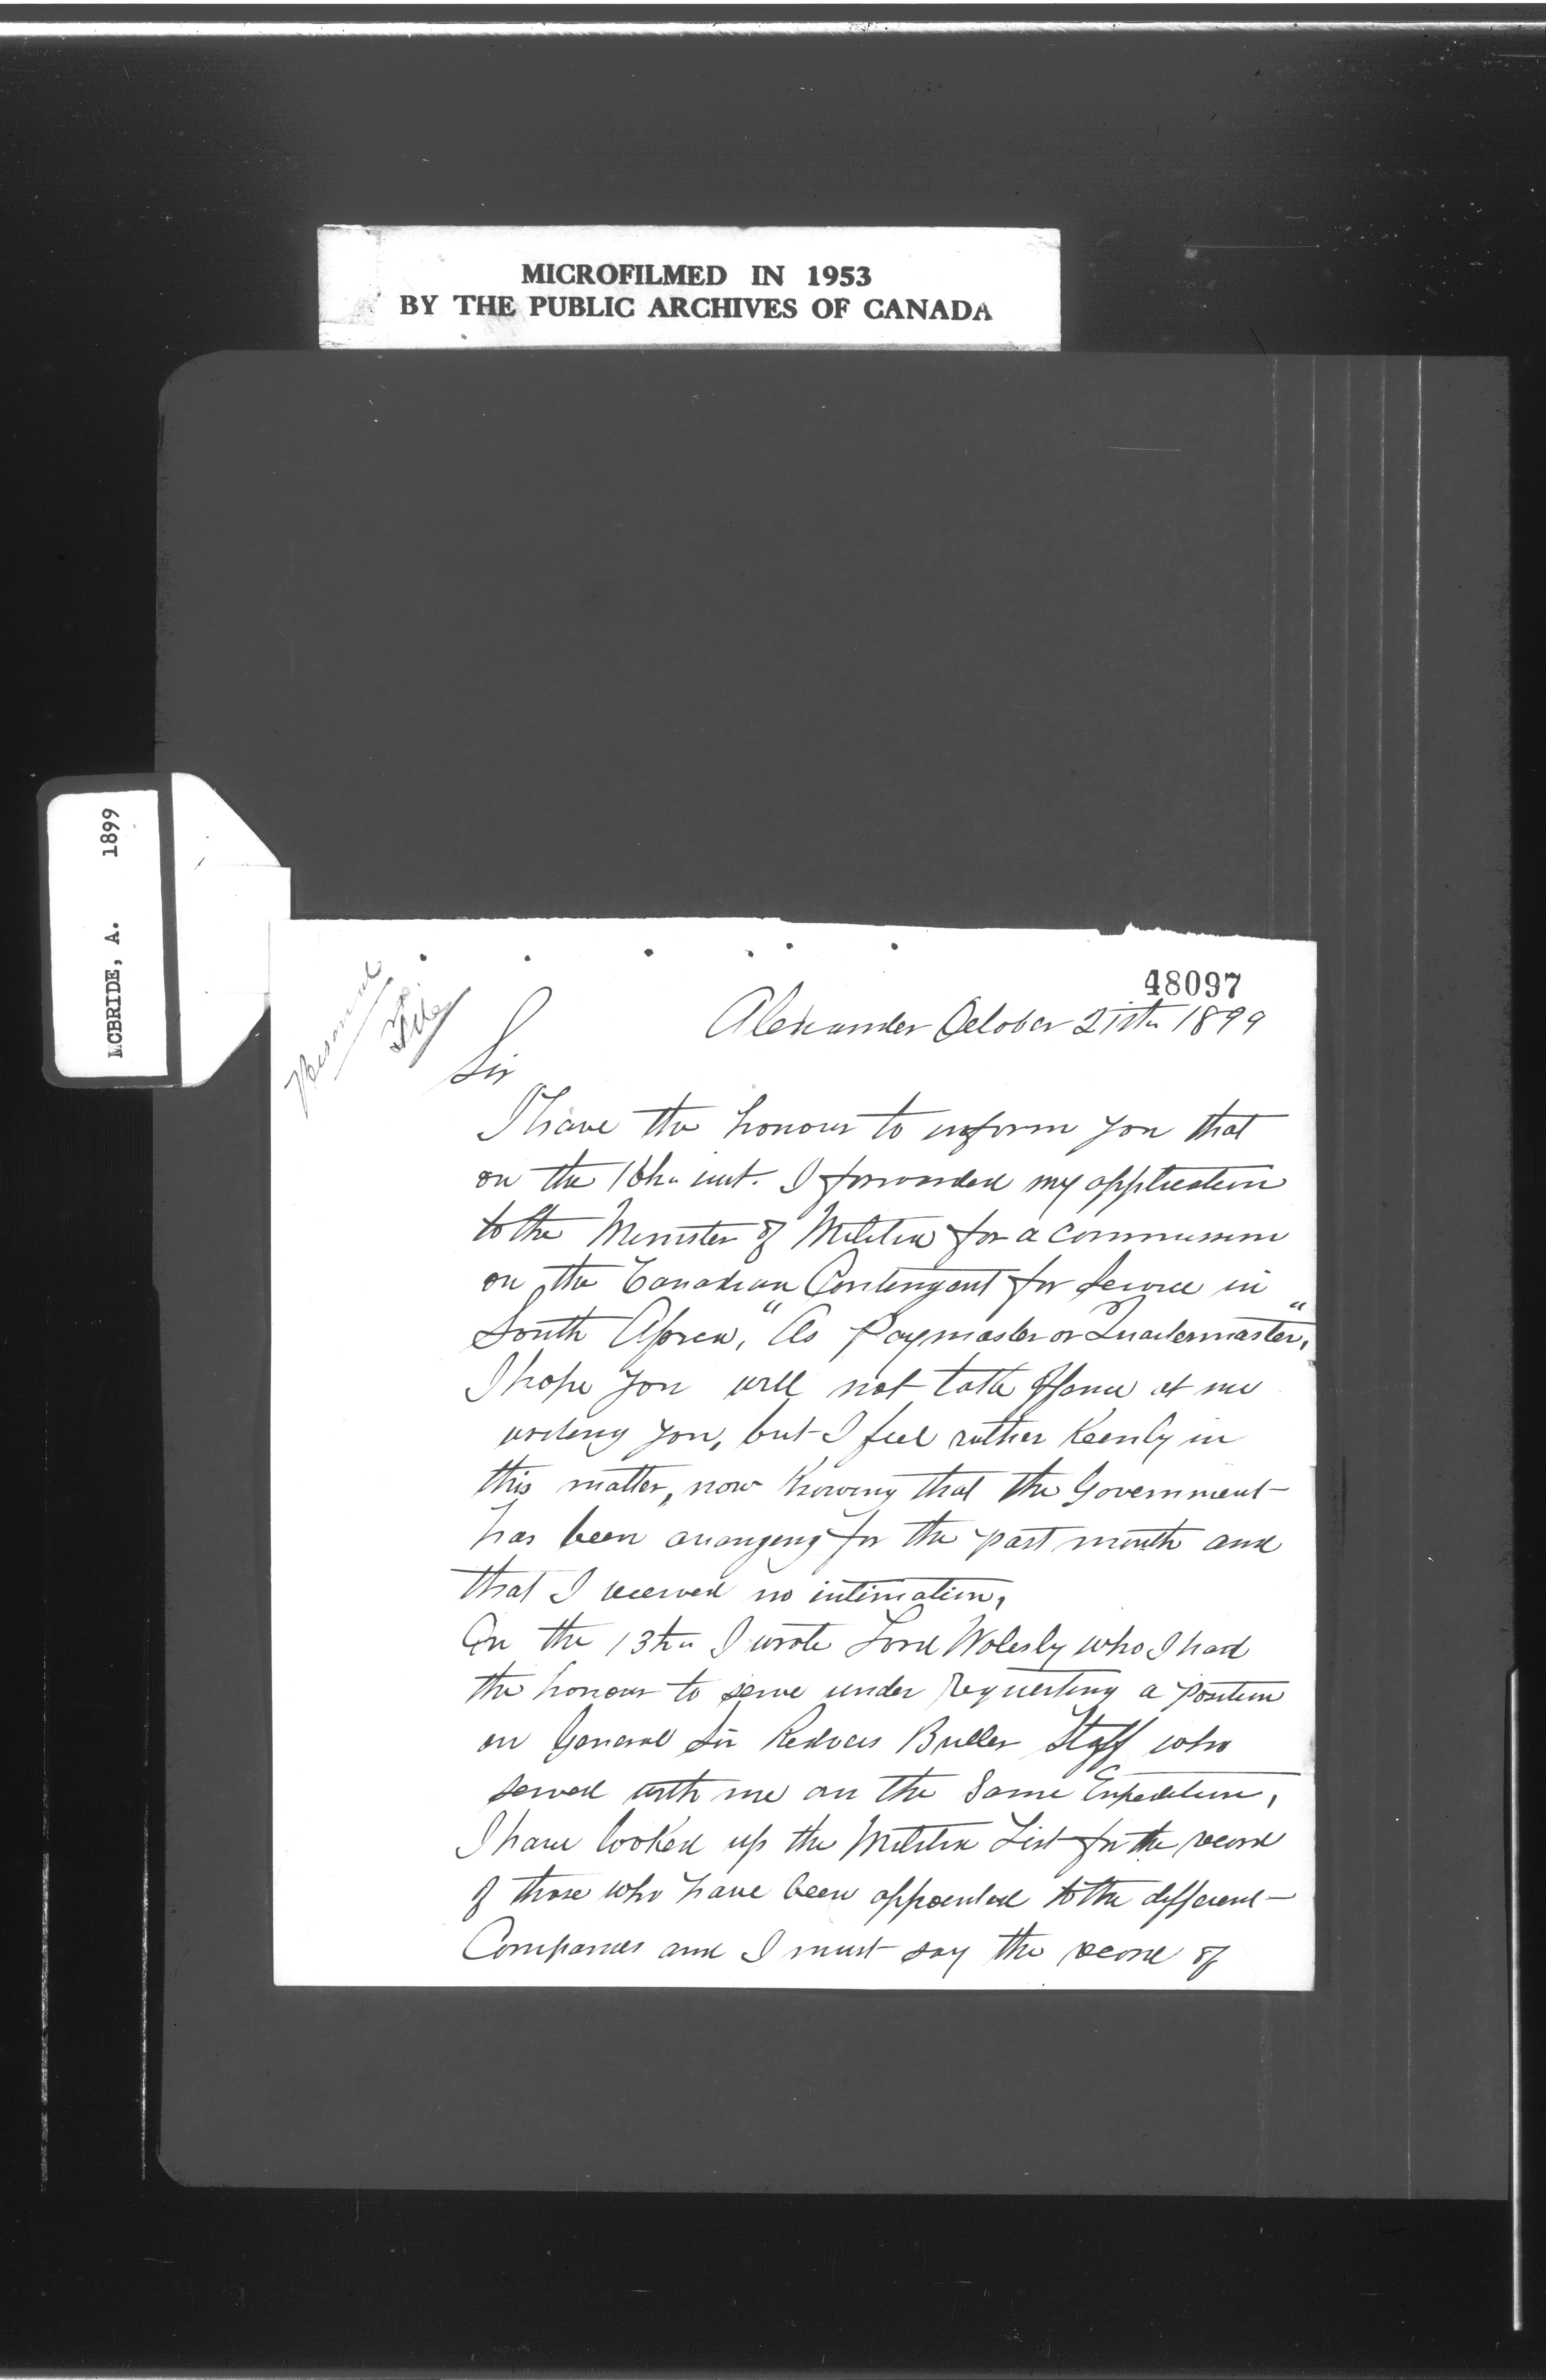 MICROFILMED IN 1953
BY THE PUBLIC ARCHIVES OF CANADA
MCBRIDE, A. 1899
48097
Personal
File
Alexander October 21stn 1899
Sir
I have the honour to inform you that
on the 16th inst. I forwarded my application
to the Minister of Militia for a commission
on the Canadian Contingent for Service in
South Africa, "As Paymaster or Quartermaster,"
I hope you will not take offence at me
writing you, but I feel rather Keenly in
this matter, now Knowing that the Government
has been arranging for the past month and
that I received no intimation,
On the 13th I wrote Lord Wolesly who I had
the honour to serve under requesting a position
on General Sir Redvers Buller Staff who
served with me on the Same Expedition,
I have looked up the Militia List for the record
of those who have been appointed to the different
Companies and I must say the record of